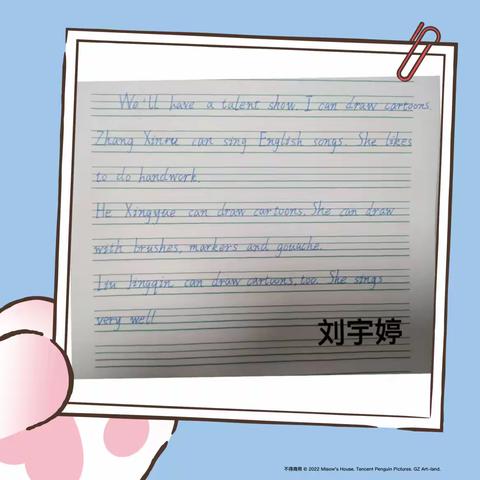 We'll have a talent show. I can draw cartoons.
Zhang Xinru can sing English songs. She likes
to do handwork.
He Xingyue can draw cartoons. She can draw
with brushes, markers and gouache.
Liu Jingqin can draw cartoons, too. She sings
very well.
刘宇婷
不得商用 © 2022 Miaow's House. Tencent Penguin Pictures. GZ Art-land.